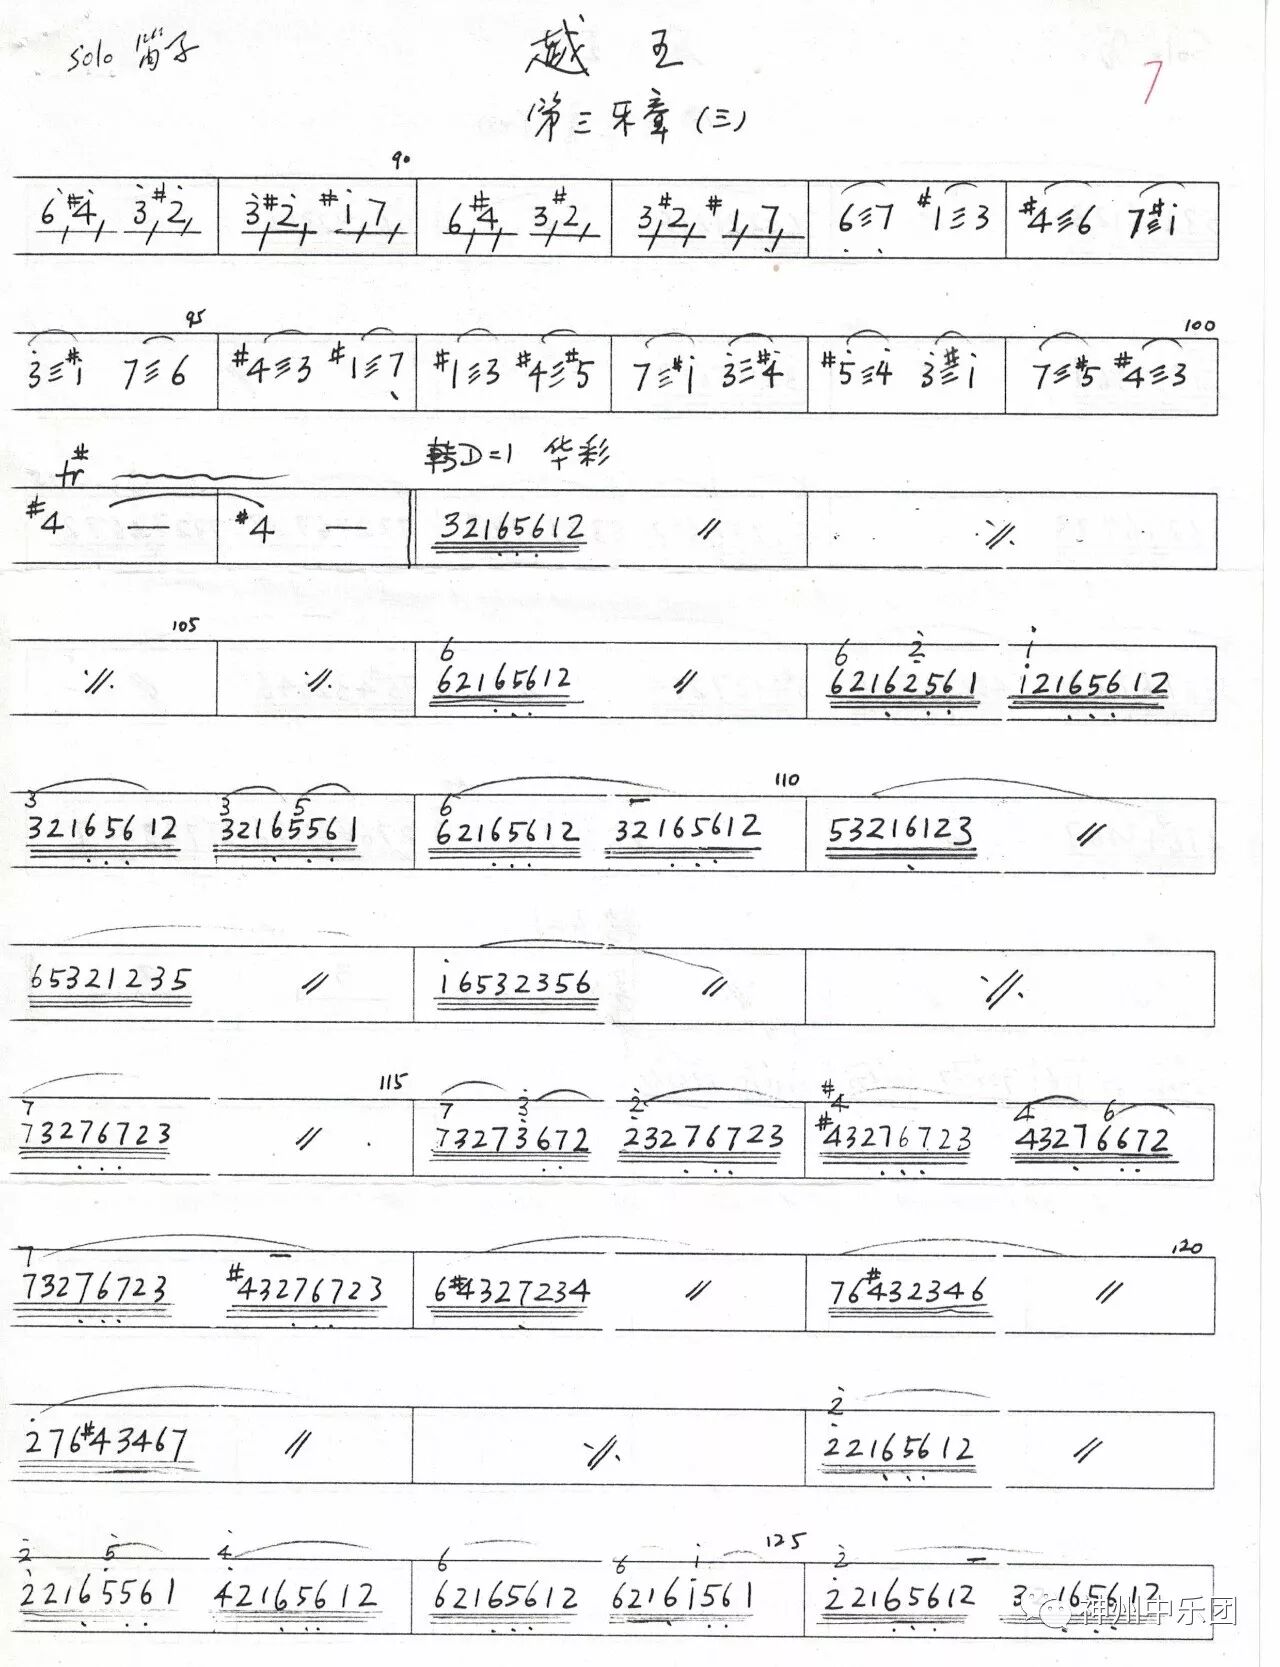 solo 笛子
越王
7
第三乐章(三)
90
6 #4 3 #2 3 #2 #1 7 6 #4 3 #2 3 #2 #1 7 6≡7 #1≡3 #4≡6 7≡#1
95 100
3≡#1 7≡6 #4≡3 #1≡7 #1≡3 #4≡#5 7≡#1 3≡#4 #5≡4 3≡#1 7≡#5 #4≡3
tr# 转D=1 华彩
#4 — #4 — 32165612 〃 ·//.
105
·//. ·//. 6 6 2 1
62165612 〃 62162561 12165612
110
3 3 5 6
32165612 32165561 62165612 32165612 53216123 〃
65321235 〃 16532356 〃 ·//.
115
7 7 3 2 #4 4 6
73276723 〃 73273672 23276723 #43276723 43276672
7 120
73276723 #43276723 6#4327234 〃 76#432346 〃
2
276#43467 〃 ·//. 22165612 〃
125
2 5 4 6 6 1 2
22165561 42165612 62165612 62161561 22165612 3 165612
神州中乐团